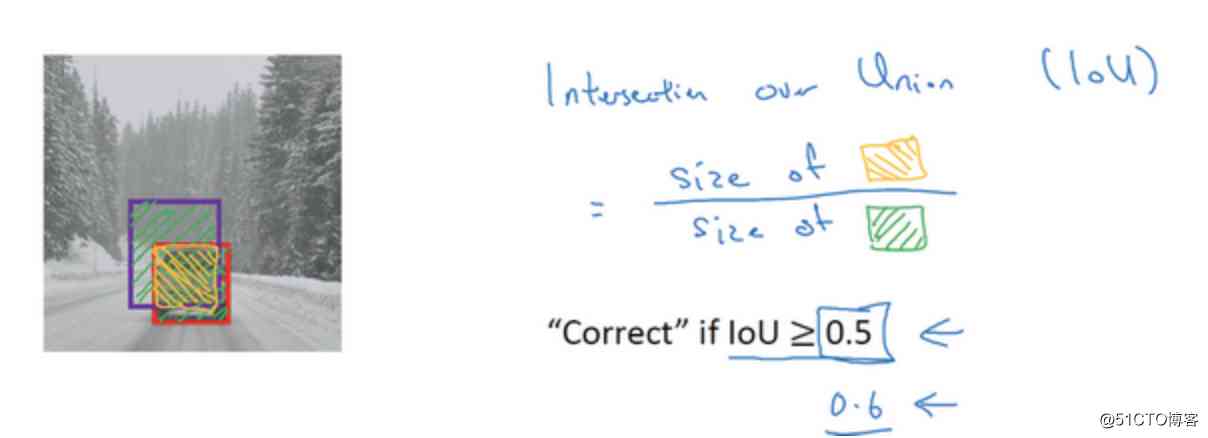 Intersection over Union (IoU)
= size of
size of
“Correct” if IoU ≥ 0.5 ←
0.6 ←
@51CTO博客